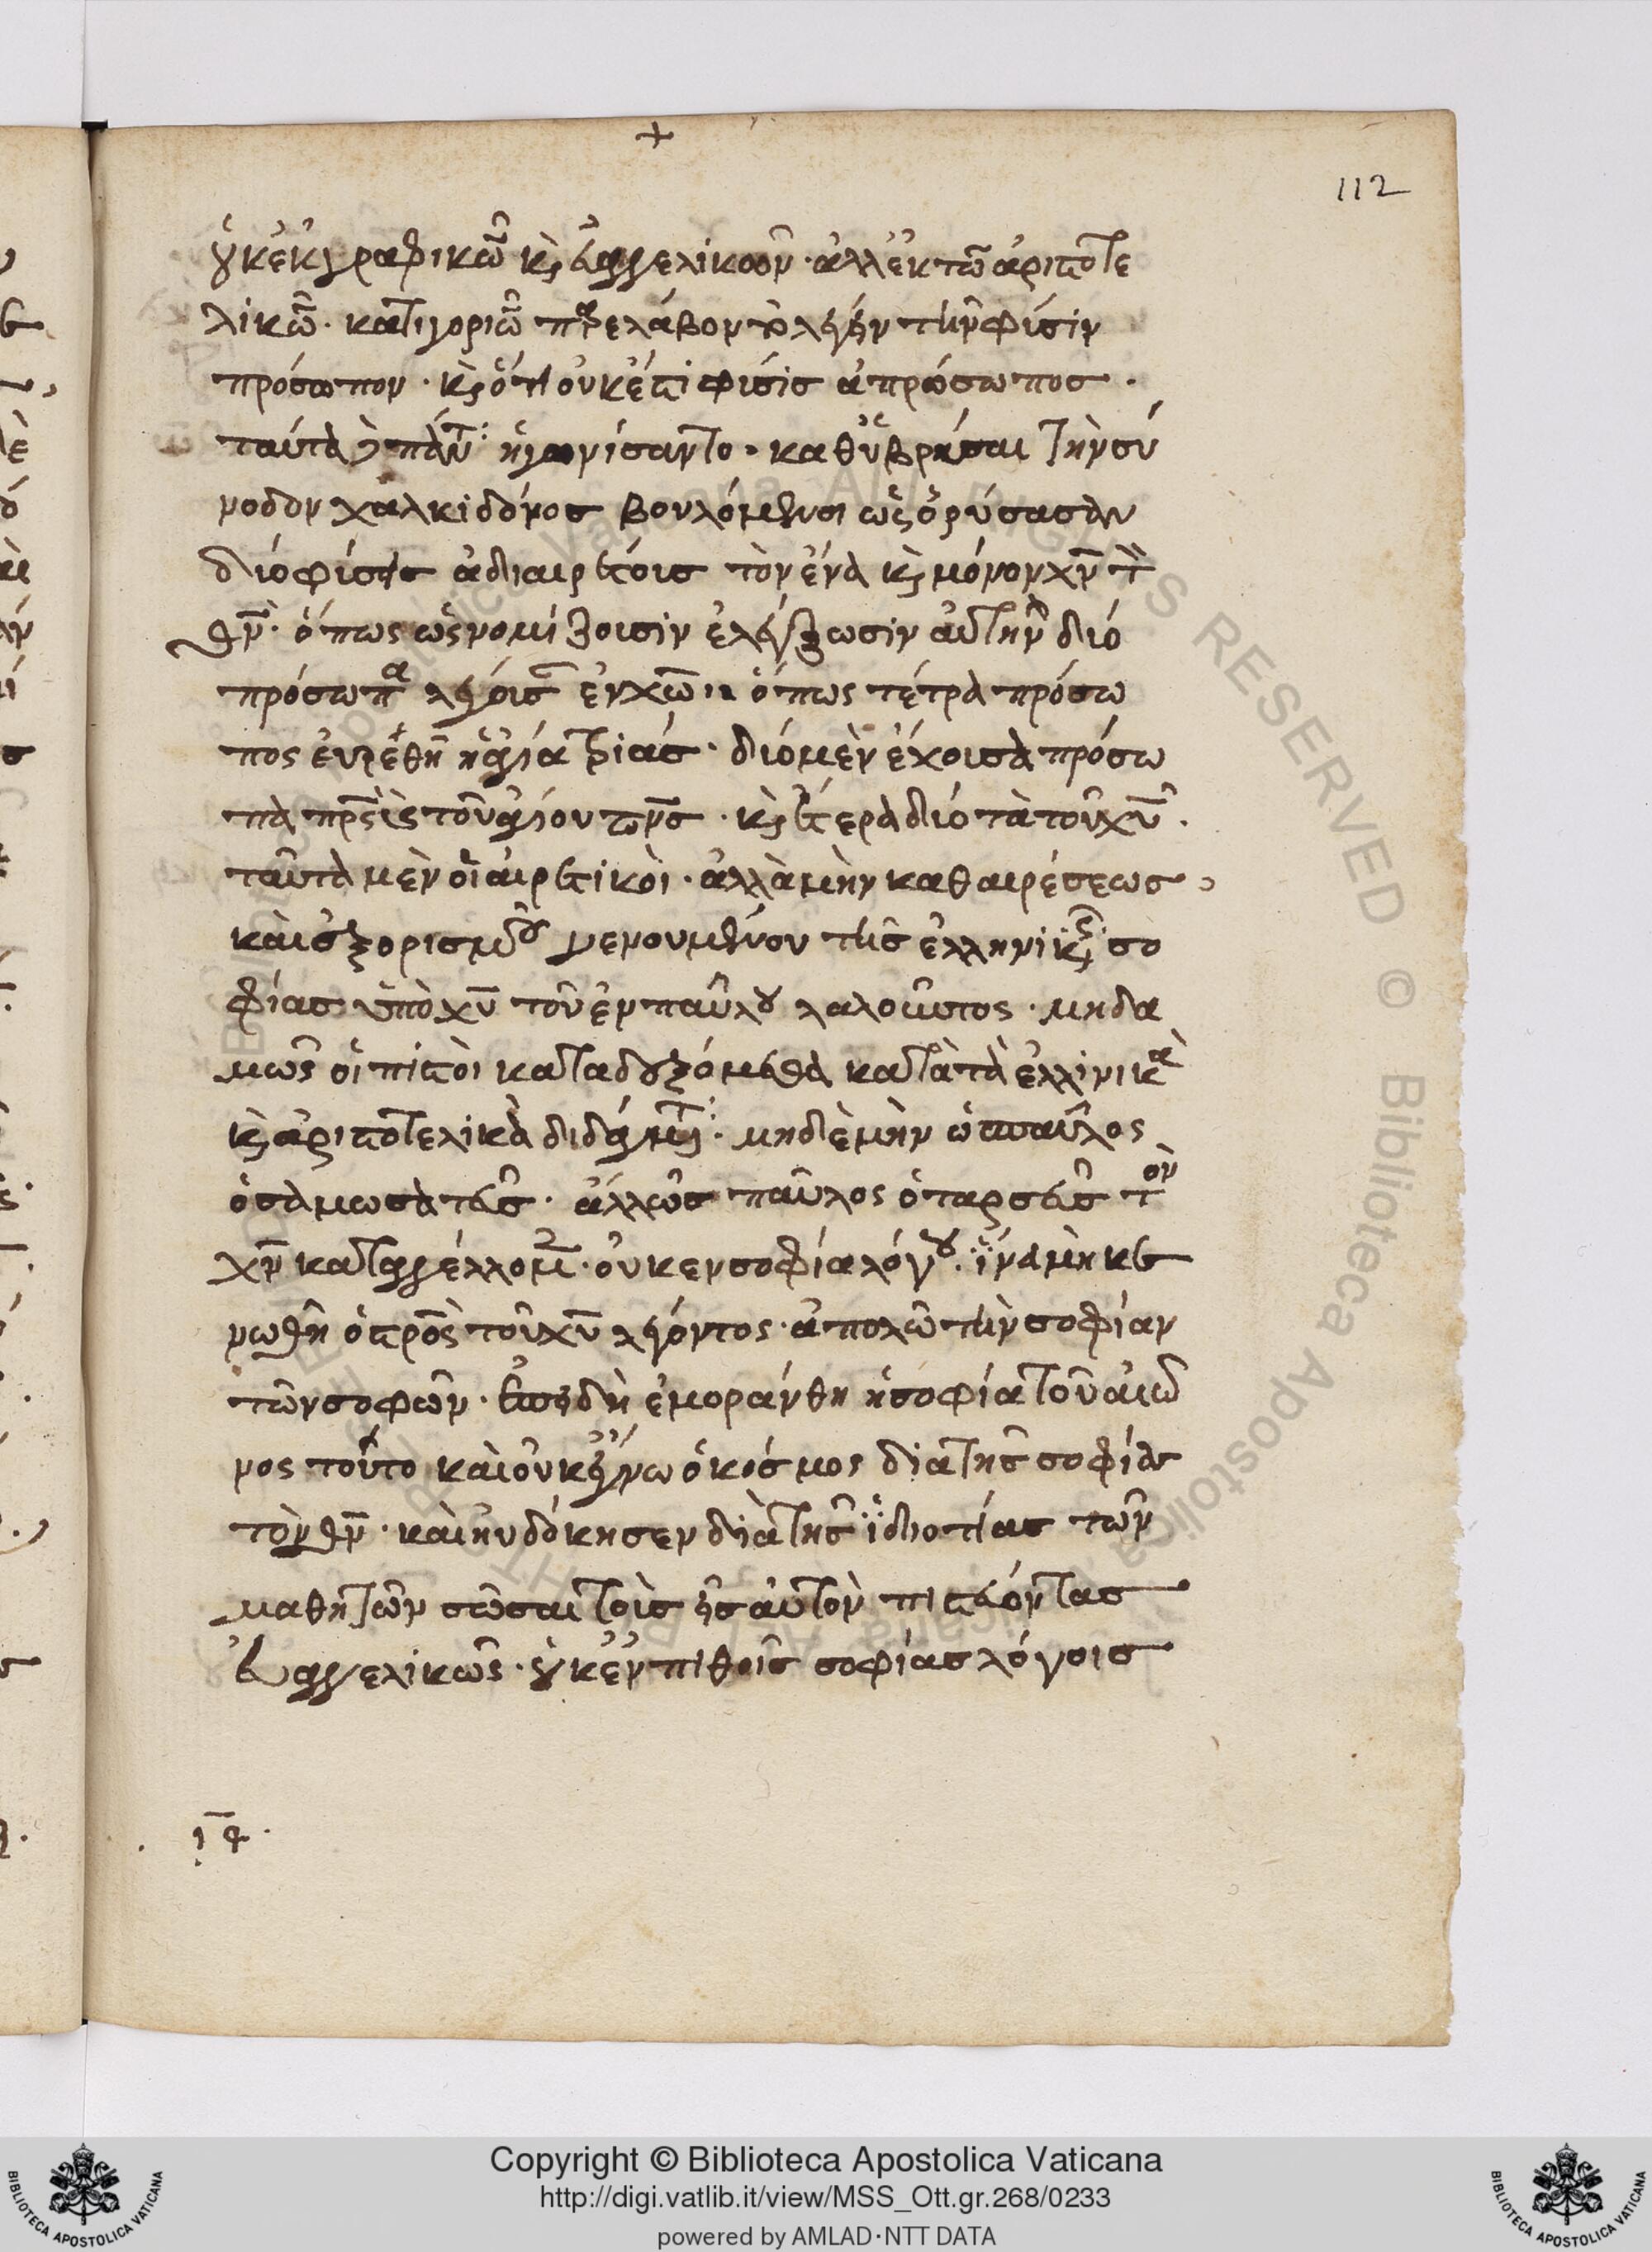 +
112
οὐκ ἐκ γραφικῶν κ(αὶ) εὐαγγελικῶν · ἀλλ' ἐκ τῶν ἀριστοτε
λικῶν · κατιγοριῶν παρελάβον τὸ λέγειν τὴν φίσιν
πρόσωπον · κ(αὶ) ὅτι οὐκ ἔστι φισὶς ἀπρόσωπος ·
ταύτα πάντ(α) ἠγωνίσαντο · καθυβρῆσαι τὴν σύ
νοδον χαλκιδόνος βουλόμενοι ὡς ὁρύσασαν
διὸ φίσεις ἀδιαιρέτοις τὸν ἕνα κ(αὶ) μόνον χν τὸν
θν · ὅπως ὡς νομίζοισιν ἐλέγξωσιν αὐτὴν διὸ
πρόσωπα λέγοισ ἐν χω · ὅπως τέτρα πρόσω
πος ἐυρέθη ἡ ἁγία τριάς · διὸ μὲν ἔχοισα πρόσω
πα πρς τοῦ ἁγίου πνς · κ(αὶ) ἕτερα διὸ τὰ τοῦ χυ ·
ταῦτα μὲν οἱ αἱρετικοὶ · ἀλλὰ μὴν καθαιρέσεως
καὶ ἐξορισμοῦ γενουμένου τῆς ἑλληνικῆς σο
φίας ὑπὸ χυ τοῦ ἐν παύλου λαλοῦντος · μηδα
μῶς οἱ πιστοὶ καταδεξόμεθα κατὰ τὰ ἑλλινικὰ
κ(αὶ) ἀριστοτελικὰ διδάγματ(α) · μηδὲ μὴν ὡς παῦλος
ὁ σαμωσατεύς · ἀλλ' ὡς παῦλος ὁ ταρσεύς τὸν
χν καταγγέλλομ(εν) · οὐκ ἐν σοφία λόγου · ἵνα μὴ κε
νωθῆ ὁ σρος τοῦ χυ λέγοντος · ἀπολῶ τὴν σοφίαν
τῶν σοφῶν · ἐπειδὴ ἐμοράνθη ἡ σοφία τοῦ αἰῶ
νος τοῦτο καὶ οὐκ ἔγνω ὁ κόσμος διὰ τῆς σοφίας
τὸν θν · καὶ ηὐδόκησεν διὰ τῆς ἰδιοτίας τῶν
μαθητῶν σῶσαι τοὶς εἰς αὐτὸν πιστεύοντας
εὐαγγελικῶς · οὐκ ἐν πιθοῖς σοφίας λόγοις
Copyright © Biblioteca Apostolica Vaticana
http://digi.vatlib.it/view/MSS_Ott.gr.268/0233
powered by AMLAD·NTT DATA
BIBLIOTECA APOSTOLICA VATICANA
BIBLIOTECA APOSTOLICA VATICANA